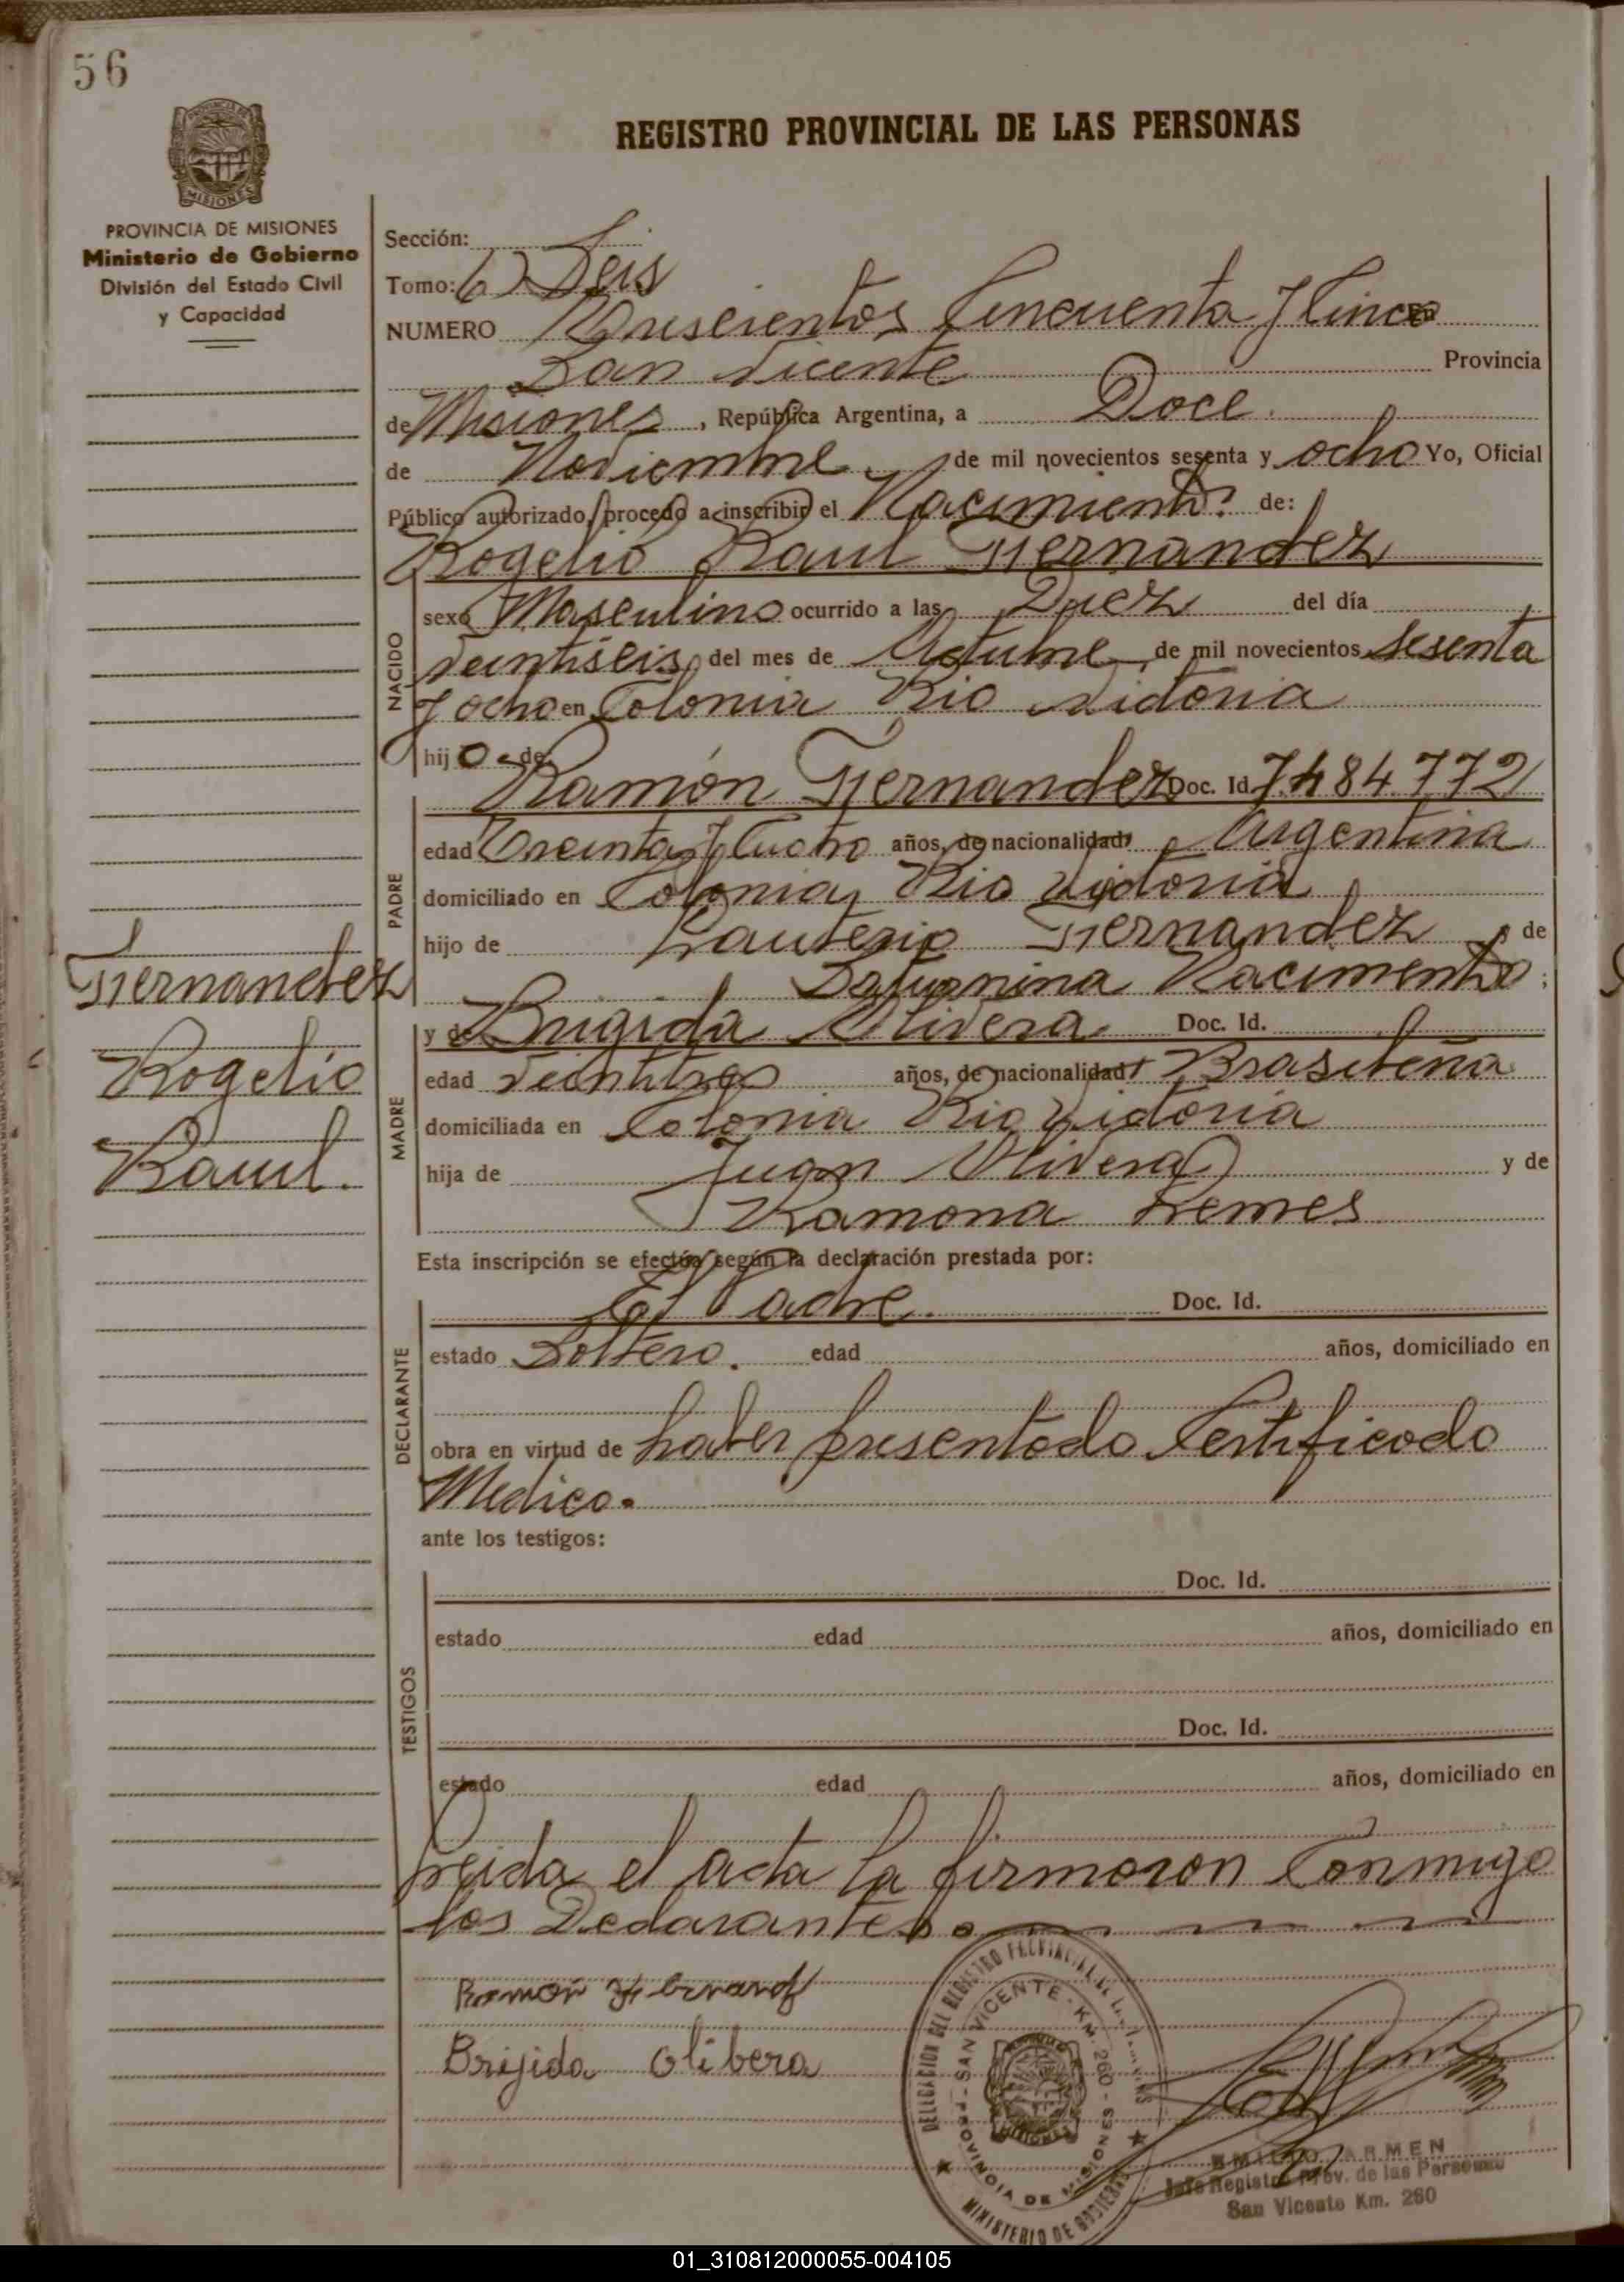 56
REGISTRO PROVINCIAL DE LAS PERSONAS
PROVINCIA DE MISIONES
Ministerio de Gobierno
División del Estado Civil
y Capacidad
Sección:
Tomo: 6) Seis
NUMERO Trescientos Cincuenta y Cinco En
San Vicente Provincia
de Misiones, República Argentina, a Doce
de Noviembre de mil novecientos sesenta y ocho Yo, Oficial
Público autorizado, procedo a inscribir el Nacimiento de:
Rogelio Raul Fernandez
NACIDO
sexo Masculino ocurrido a las Diez del día
veintiseis del mes de Octubre de mil novecientos Sesenta
y ocho en Colonia Rio Victoria
hijo de
Ramón Fernandez Doc. Id. 7.484.772
PADRE
edad Treinta y Cuatro años, de nacionalidad Argentina
domiciliado en Colonia Rio Victoria
hijo de Fernandez y de
Saturnina Nacimento;
Fernandez
Rogelio
Raul.
MADRE
y de Brigida Olivera Doc. Id.
edad veintitres años, de nacionalidad Brasileña
domiciliada en Colonia Rio Victoria
hija de Juan Olivera y de
Ramona Lemes
Esta inscripción se efectúa según la declaración prestada por:
DECLARANTE
El Padre. Doc. Id.
estado Soltero. edad años, domiciliado en
obra en virtud de haber presentado Certificado
Medico.
ante los testigos:
TESTIGOS
Doc. Id.
estado edad años, domiciliado en
Doc. Id.
estado edad años, domiciliado en
Leida el acta la firmaron Conmigo
los Declarantes.
Ramon
Brijida Olibera
DELEGACION DEL REGISTRO PROVINCIAL DE LAS PERSONAS
SAN VICENTE - KM. 260 - PROVINCIA DE MISIONES
MISIONES
MINISTERIO DE GOBIERNO
ARMEN
Jefe Registro Prov. de las Personas
San Vicente Km. 260
01_310812000055-004105